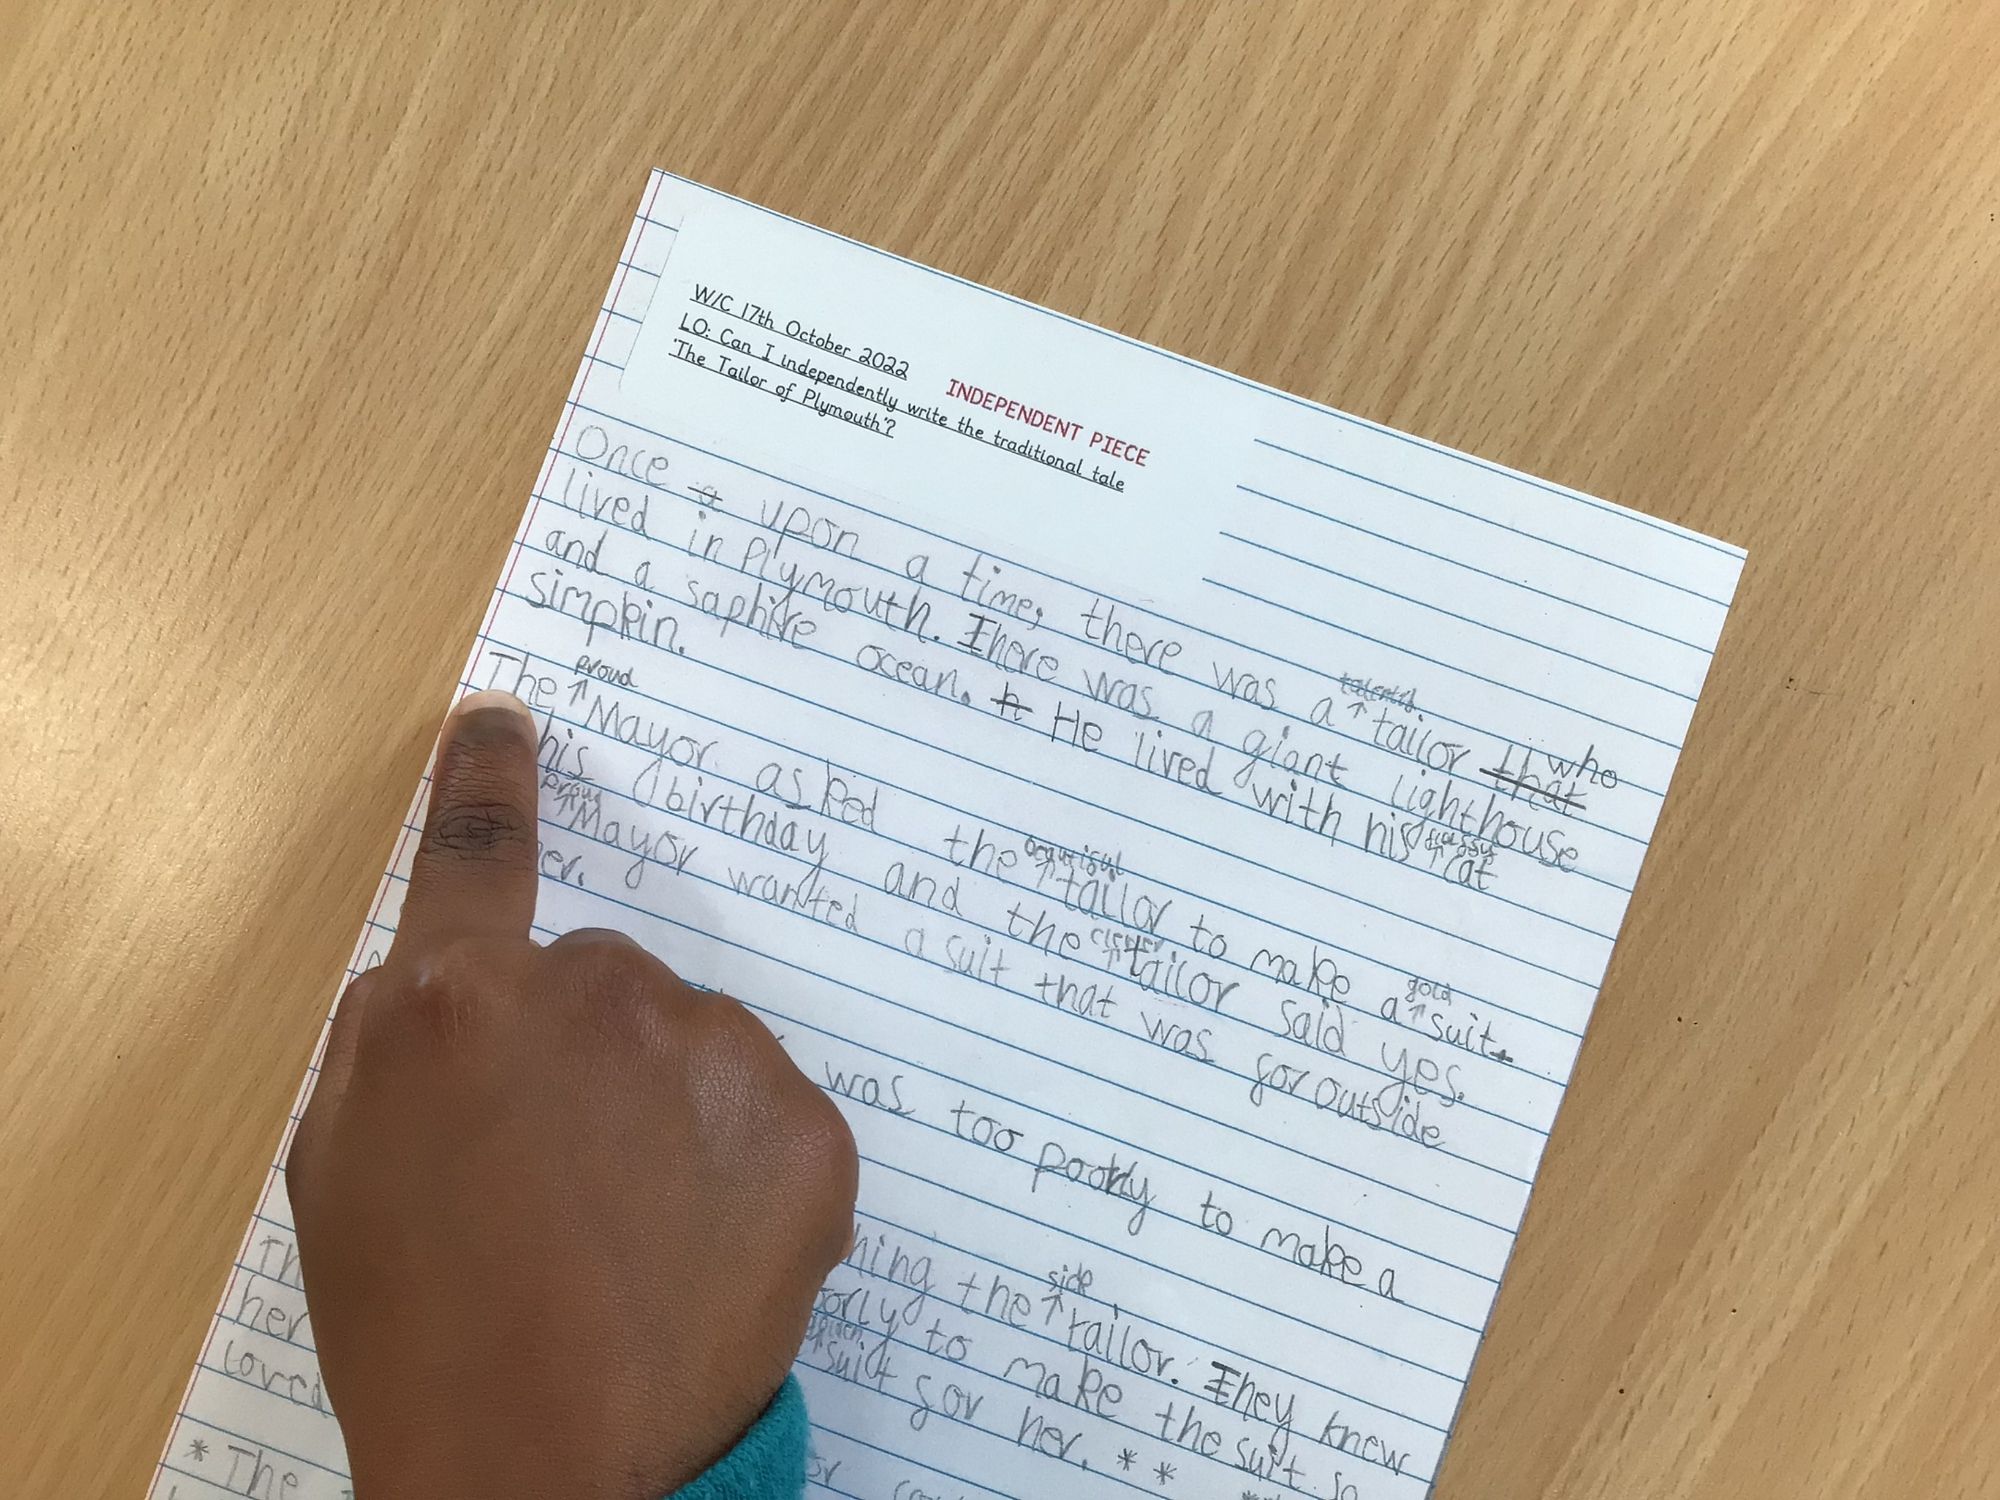 W/C 17th October 2022
INDEPENDENT PIECE
LO: Can I independently write the traditional tale
'The Tailor of Plymouth'?
Once a upon a time, there was a talented tailor that who
lived in Plymouth. There was a giant lighthouse
and a saphire ocean. H He lived with his cat
simpkin.
The proud Mayor asked the beautiful tailor to make a gold suit
his birthday and the clever tailor said yes.
proud Mayor wanted a suit that was for outside
her.
was too poorly to make a
hing the side tailor. They knew
her orly to make the suit so
loved suit for her. * *
* The